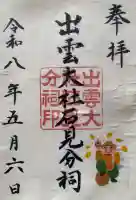 奉拝
出雲大社石見分祠
出雲大
社石見
分祠印
令和八年五月六日